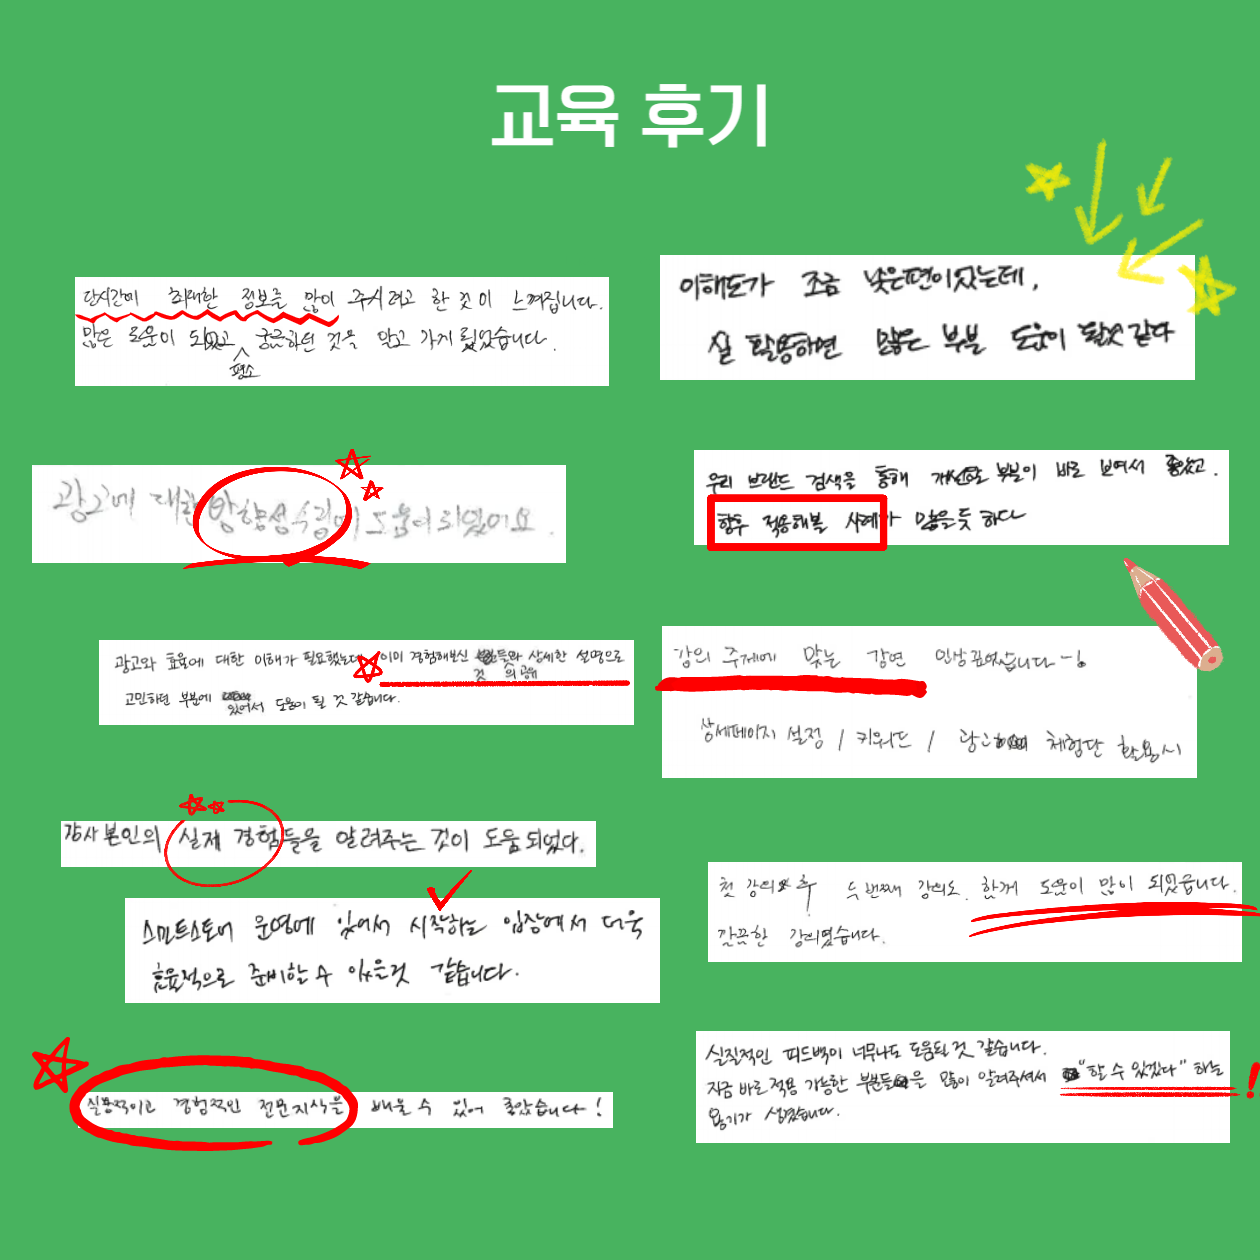 교육 후기
단시간에 최대한 정보를 많이 주시려고 한 것이 느껴집니다.
많은 도움이 되었고 평소 궁금하던 것을 알고 가게 되었습니다.
이해도가 조금 낮은편이었는데,
실 활용하면 많은 부분 도움이 될것 같다
광고에 대한 방향성 수립에 도움이 되었어요.
우리 브랜드 검색을 통해 개선 부분이 바로 보여서 좋았고.
향후 적용해볼 사례가 많을듯 하다
광고와 효율에 대한 이해가 필요했는데 이미 경험해보신 것들의 공유와 상세한 설명으로
고민하던 부분에 있어서 도움이 될 것 같습니다.
강의 주제에 맞는 강연 인상 깊었습니다~!
상세페이지 설정 / 키워드 / 광고 체험단 활용시
강사 본인의 실제 경험들을 알려주는 것이 도움 되었다.
스마트스토어 운영에 있어서 시작하는 입장에서 더욱
효율적으로 준비할 수 있을것 같습니다.
첫 강의 후 두번째 강의도. 함께 도움이 많이 되었습니다.
깔끔한 강의였습니다.
실용적이고 경험적인 전문지식을 배울 수 있어 좋았습니다!
실질적인 피드백이 너무나도 도움될 것 같습니다.
지금 바로 적용 가능한 부분들을 많이 알려주셔서 "할 수 있겠다" 하는
용기가 생겼습니다.